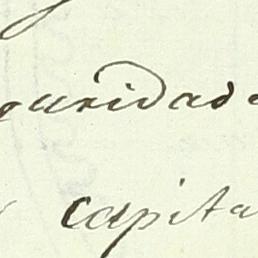 guridad
capita